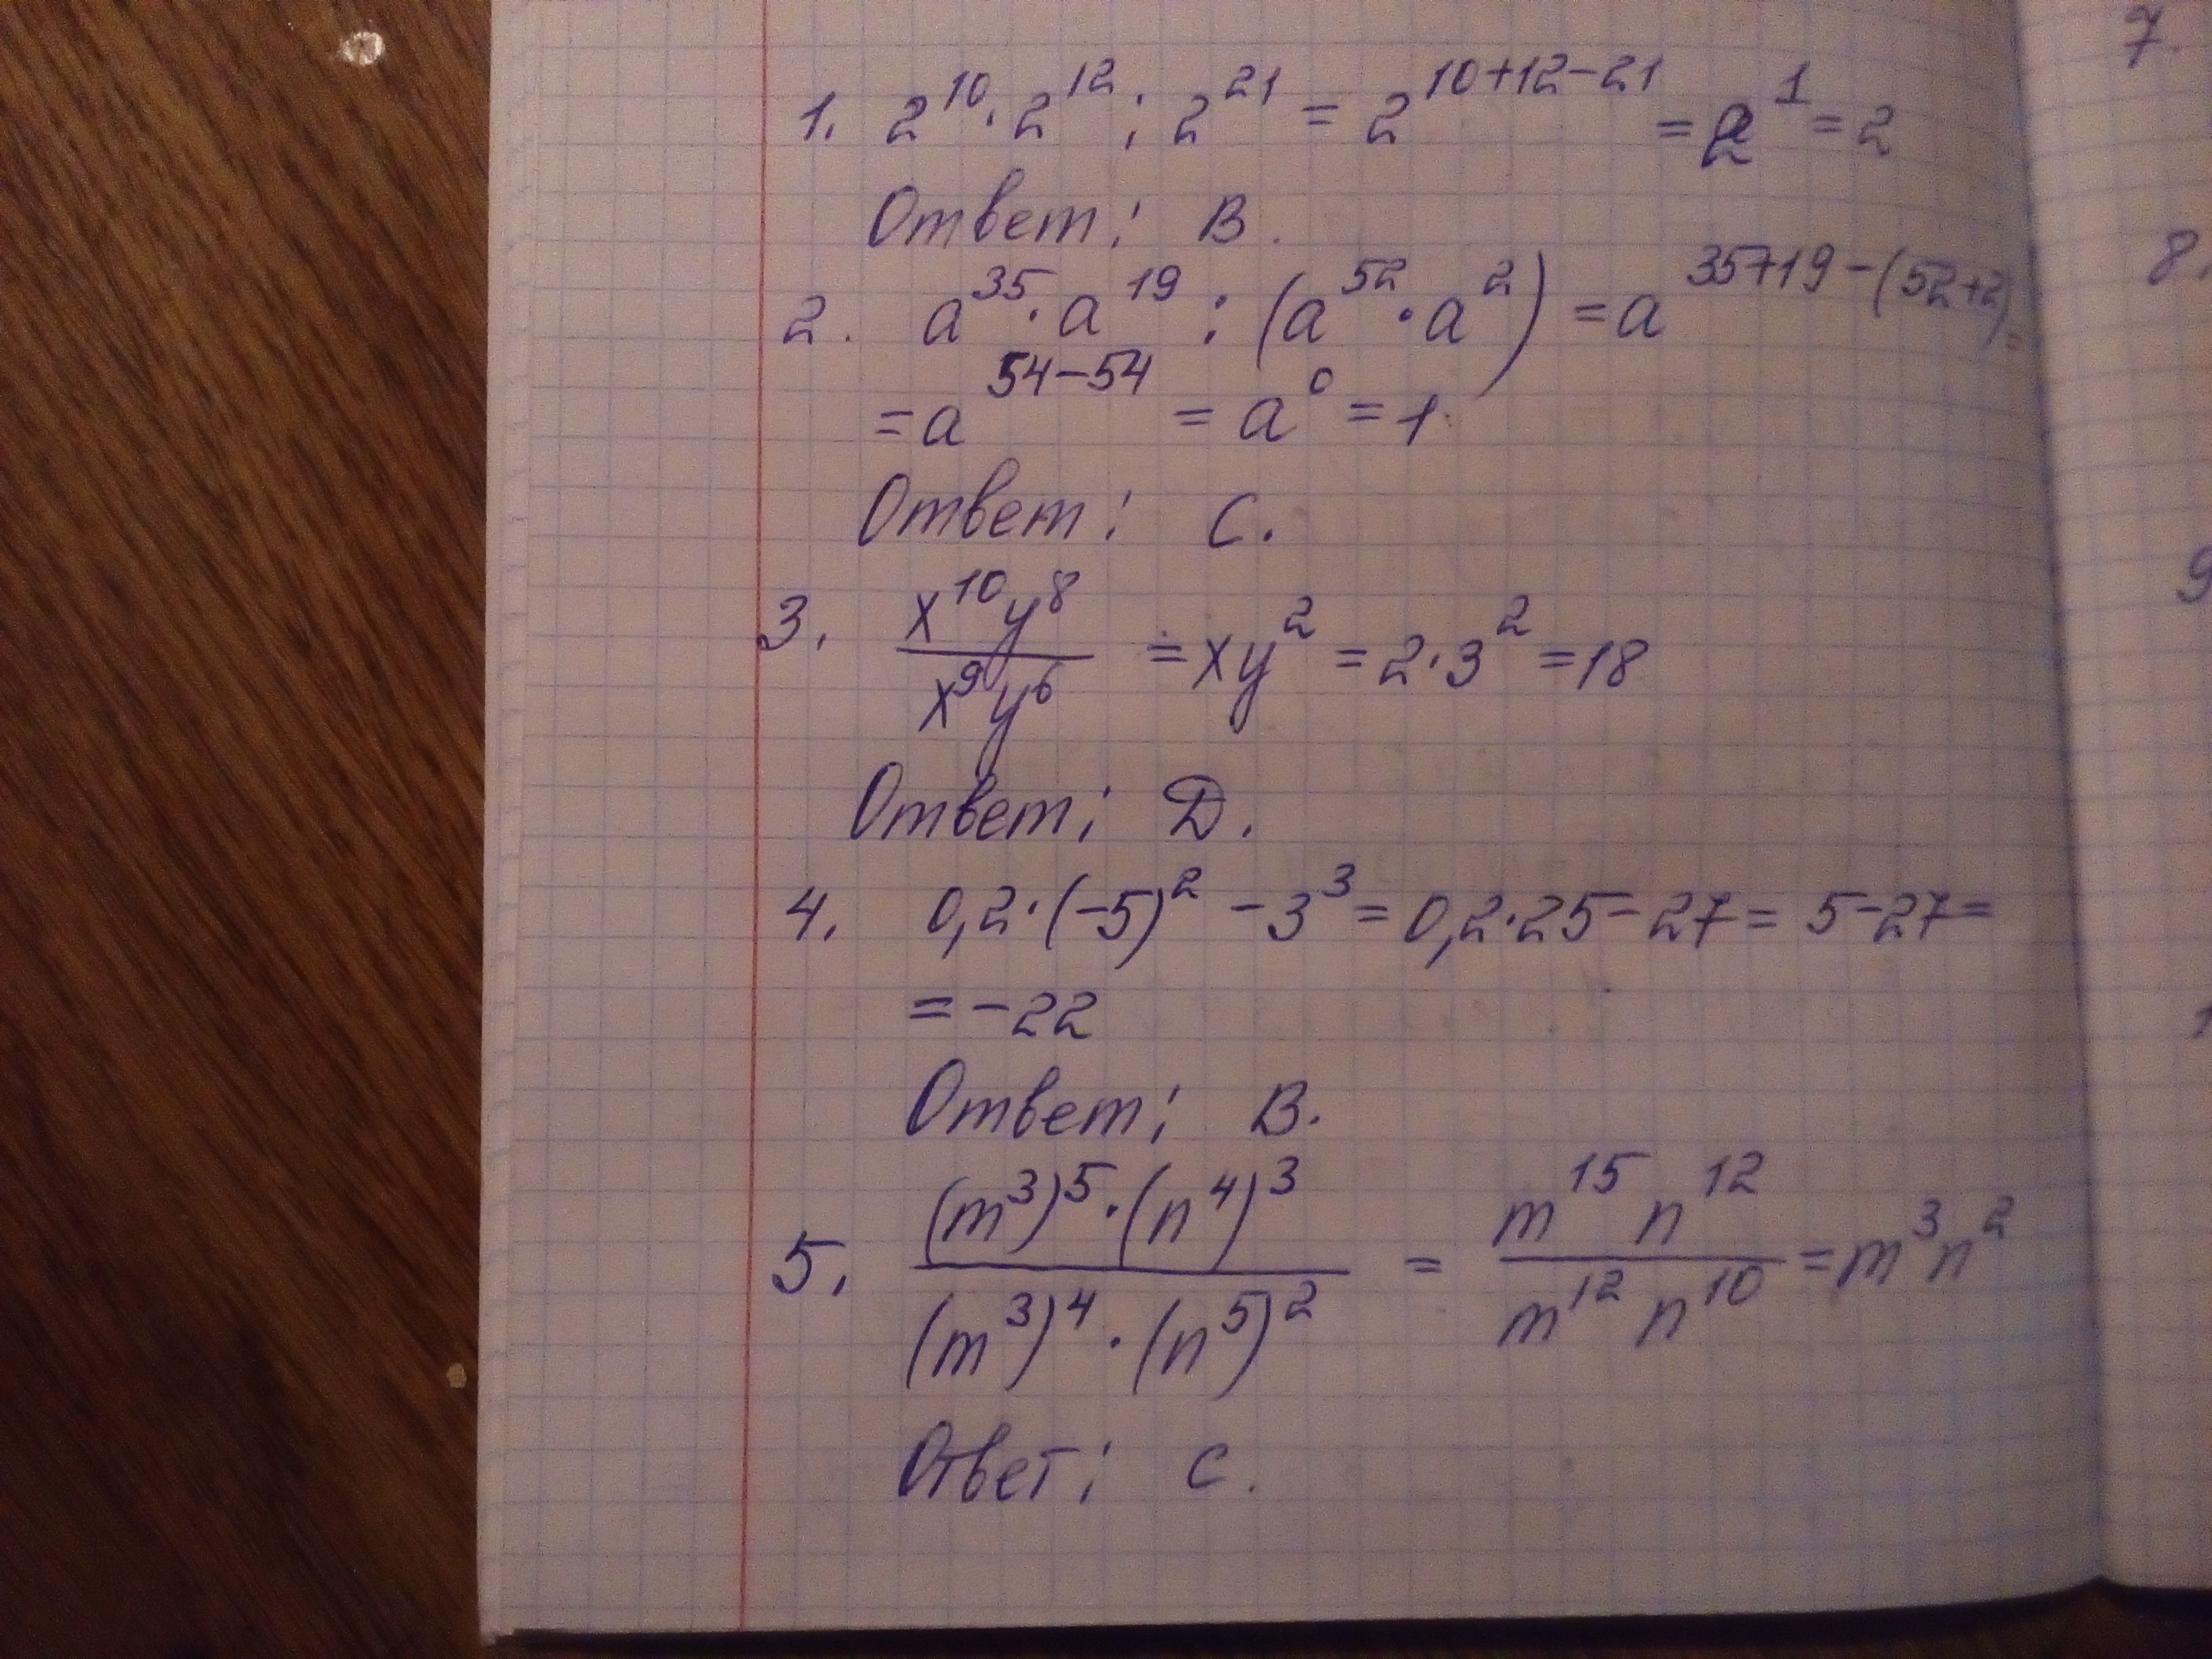 1. 2^10 · 2^12 : 2^21 = 2^(10+12−21) = 2^1 = 2
Ответ: B.
2. a^35 · a^19 : (a^52 · a^2) = a^(35+19−(52+2)) =
= a^(54−54) = a^0 = 1.
Ответ: C.
3. x^10 y^8 / x^9 y^6 = xy^2 = 2·3^2 = 18
Ответ: D.
4. 0,2·(−5)^2 − 3^3 = 0,2·25 − 27 = 5−27 =
= −22
Ответ: B.
5. (m^3)^5 · (n^4)^3 / (m^3)^4 · (n^5)^2 = m^15 n^12 / m^12 n^10 = m^3 n^2
Ответ: C.
7.
8.
9
1